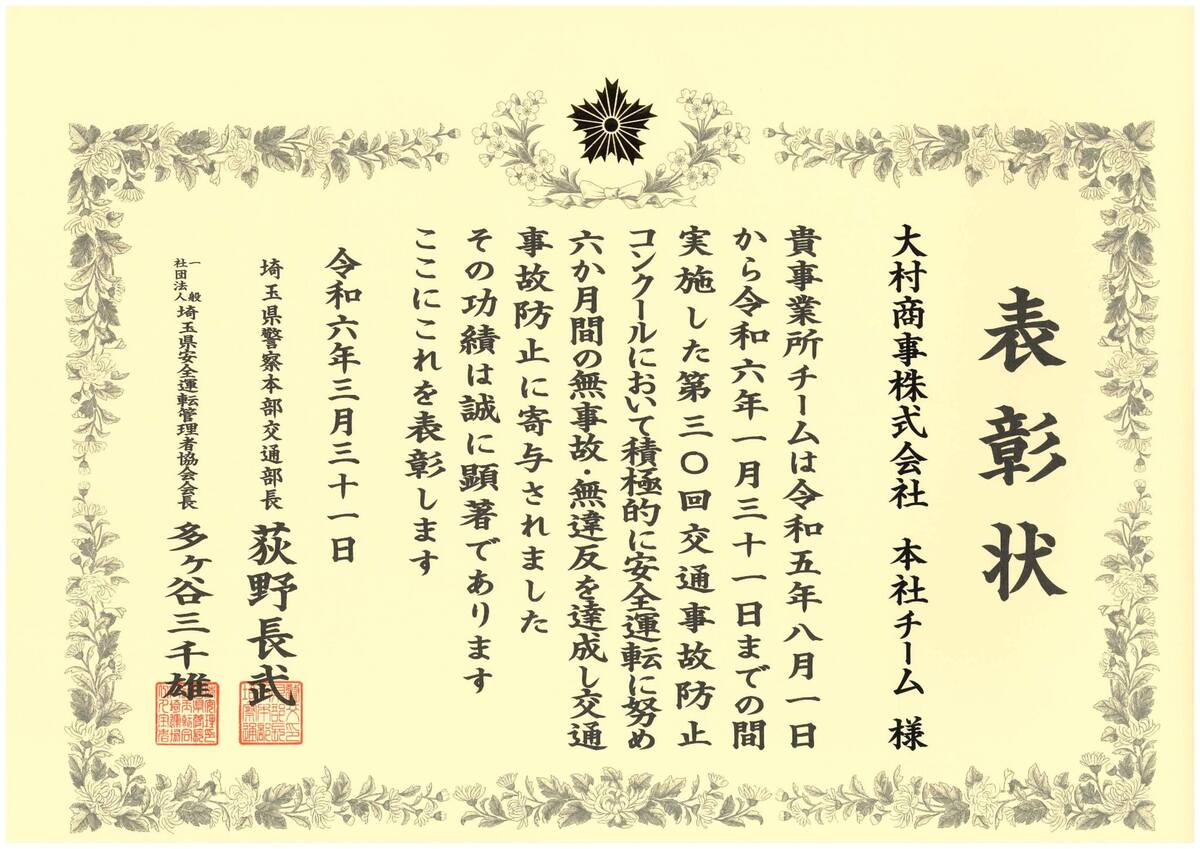 表彰状
大村商事株式会社 本社チーム 様
貴事業所チームは令和五年八月一日
から令和六年一月三十一日までの間
実施した第三〇回交通事故防止
コンクールにおいて積極的に安全運転に努め
六か月間の無事故・無違反を達成し交通
事故防止に寄与されました
その功績は誠に顕著であります
ここにこれを表彰します
令和六年三月三十一日
埼玉県警察本部交通部長 荻野長武
一般社団法人 埼玉県安全運転管理者協会会長 多ヶ谷三千雄